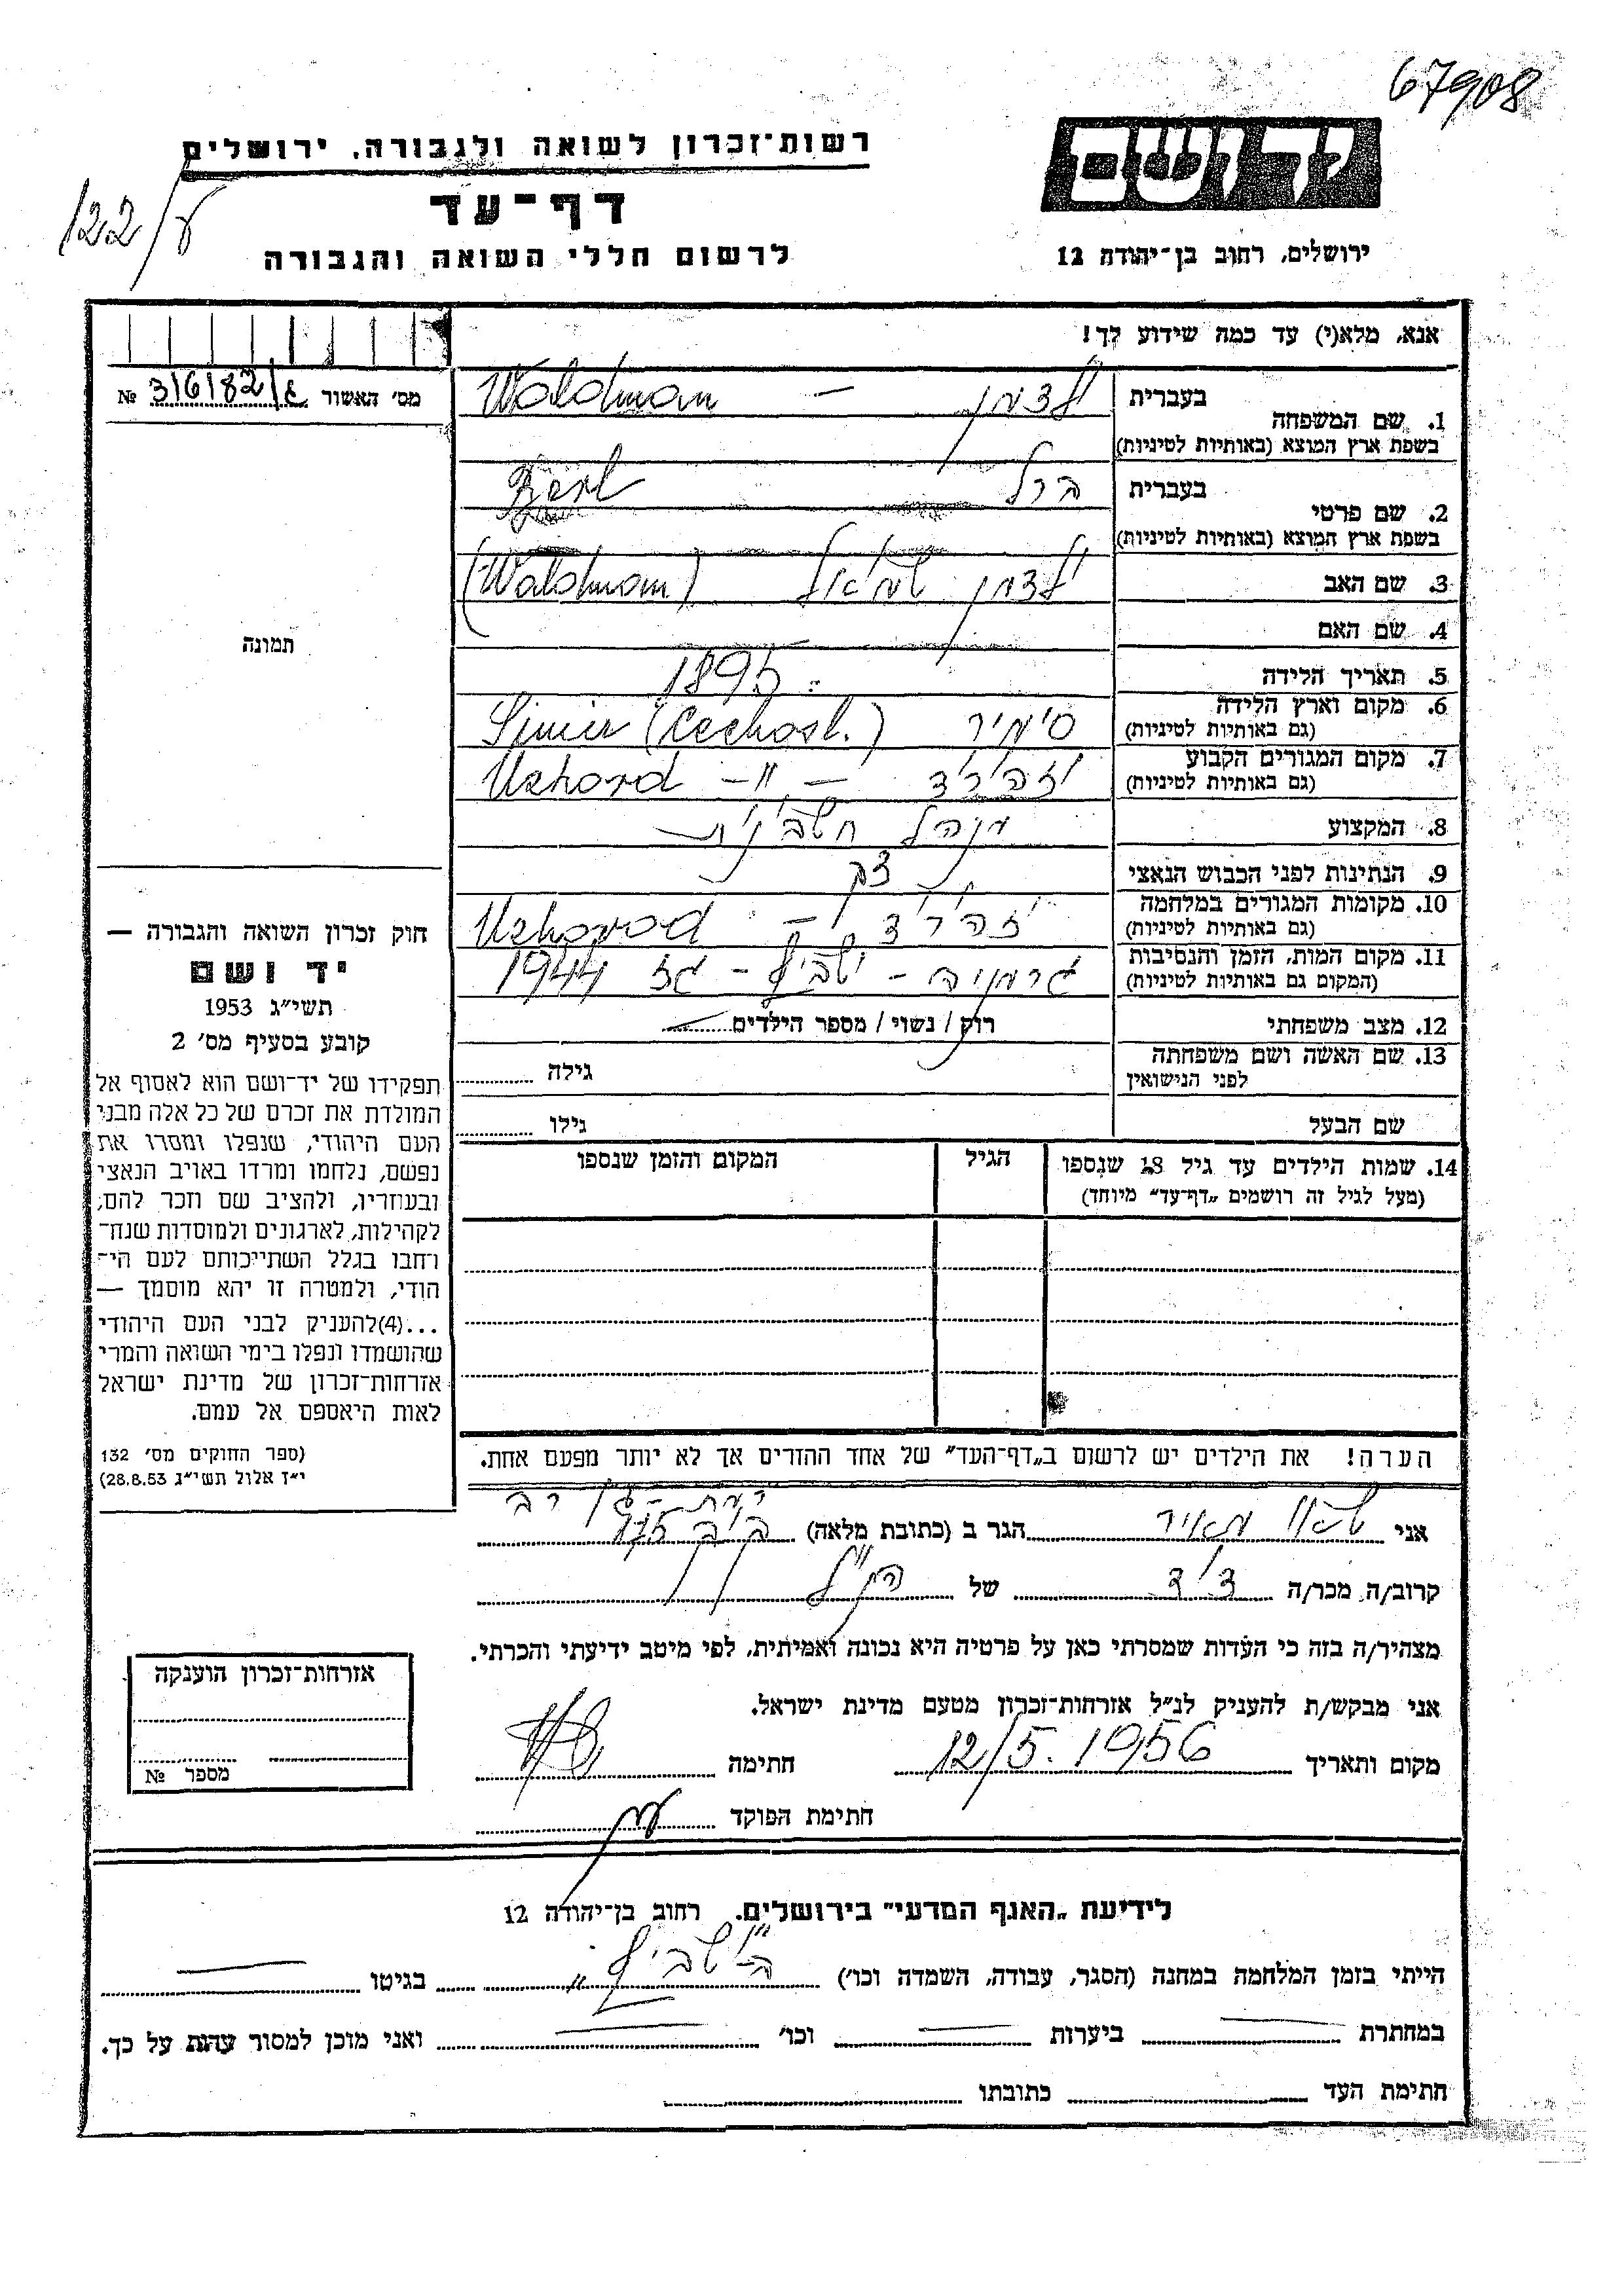 67908
רשות־זכרון לשואה ולגבורה, ירושלים
יד ושם
דף־עד
122/ע
לרשום חללי השואה והגבורה
ירושלים, רחוב בן־יהודה 12
אנא, מלא(י) עד כמה שידוע לך!
מס׳ האשור 316182/ע №
1. שם המשפחה
בעברית ולדמן — Waldman
בשפת ארץ המוצא (באותיות לטיניות)
2. שם פרטי
בעברית ברל Berl
בשפת ארץ המוצא (באותיות לטיניות)
3. שם האב ולדמן שמואל (Waldman)
4. שם האם
5. תאריך הלידה 1895
6. מקום וארץ הלידה סימיר Simir (Cechosl.)
(גם באותיות לטיניות)
7. מקום המגורים הקבוע אוזהורוד — Uzhorod -"-
(גם באותיות לטיניות)
8. המקצוע מנהל חשבונות
9. הנתינות לפני הכבוש הנאצי
10. מקומות המגורים במלחמה Uzhorod
(גם באותיות לטיניות)
11. מקום המות, הזמן והנסיבות גרמניה - - גז 1944
(המקום גם באותיות לטיניות)
12. מצב משפחתי רוק / נשוי / מספר הילדים
13. שם האשה ושם משפחתה
לפני הנישואין
גילה
שם הבעל
גילו
14. שמות הילדים עד גיל 18 שנספו
(מעל לגיל זה רושמים „דף־עד״ מיוחד)
הגיל
המקום והזמן שנספו
הערה! את הילדים יש לרשום ב„דף־העד״ של אחד ההורים אך לא יותר מפעם אחת.
תמונה
חוק זכרון השואה והגבורה —
יד ושם
תשי״ג 1953
קובע בסעיף מס׳ 2
תפקידו של יד־ושם הוא לאסוף אל
המולדת את זכרם של כל אלה מבני
העם היהודי, שנפלו ומסרו את
נפשם, נלחמו ומרדו באויב הנאצי
ובעוזריו, ולהציב שם וזכר להם,
לקהילות, לארגונים ולמוסדות שנח־
רחבו בגלל השתייכותם לעם הי־
הודי, ולמטרה זו יהא מוסמך —
...(4)להעניק לבני העם היהודי
שהושמדו ונפלו בימי השואה והמרי
אזרחות־זכרון של מדינת ישראל
לאות היאספם אל עמם.
(ספר החוקים מס׳ 132
י״ז אלול תשי״ג 28.8.53)
אני מאיר הגר ב (כתובת מלאה) רמת-גן
קרוב/ה מכר/ה דוד של הנ״ל
מצהיר/ה בזה כי העדות שמסרתי כאן על פרטיה היא נכונה ואמיתית, לפי מיטב ידיעתי והכרתי.
אני מבקש/ת להעניק לנ״ל אזרחות־זכרון מטעם מדינת ישראל.
מקום ותאריך 12/5.1956 חתימה
חתימת הפוקד
אזרחות־זכרון הוענקה
מספר №
לידיעת „האגף המדעי״ בירושלים. רחוב בן־יהודה 12
הייתי בזמן המלחמה במחנה (הסגר, עבודה, השמדה וכו׳) בגיטו —
במחתרת — ביערות — וכו׳ — ואני מוכן למסור עדות על כך.
חתימת העד כתובתו